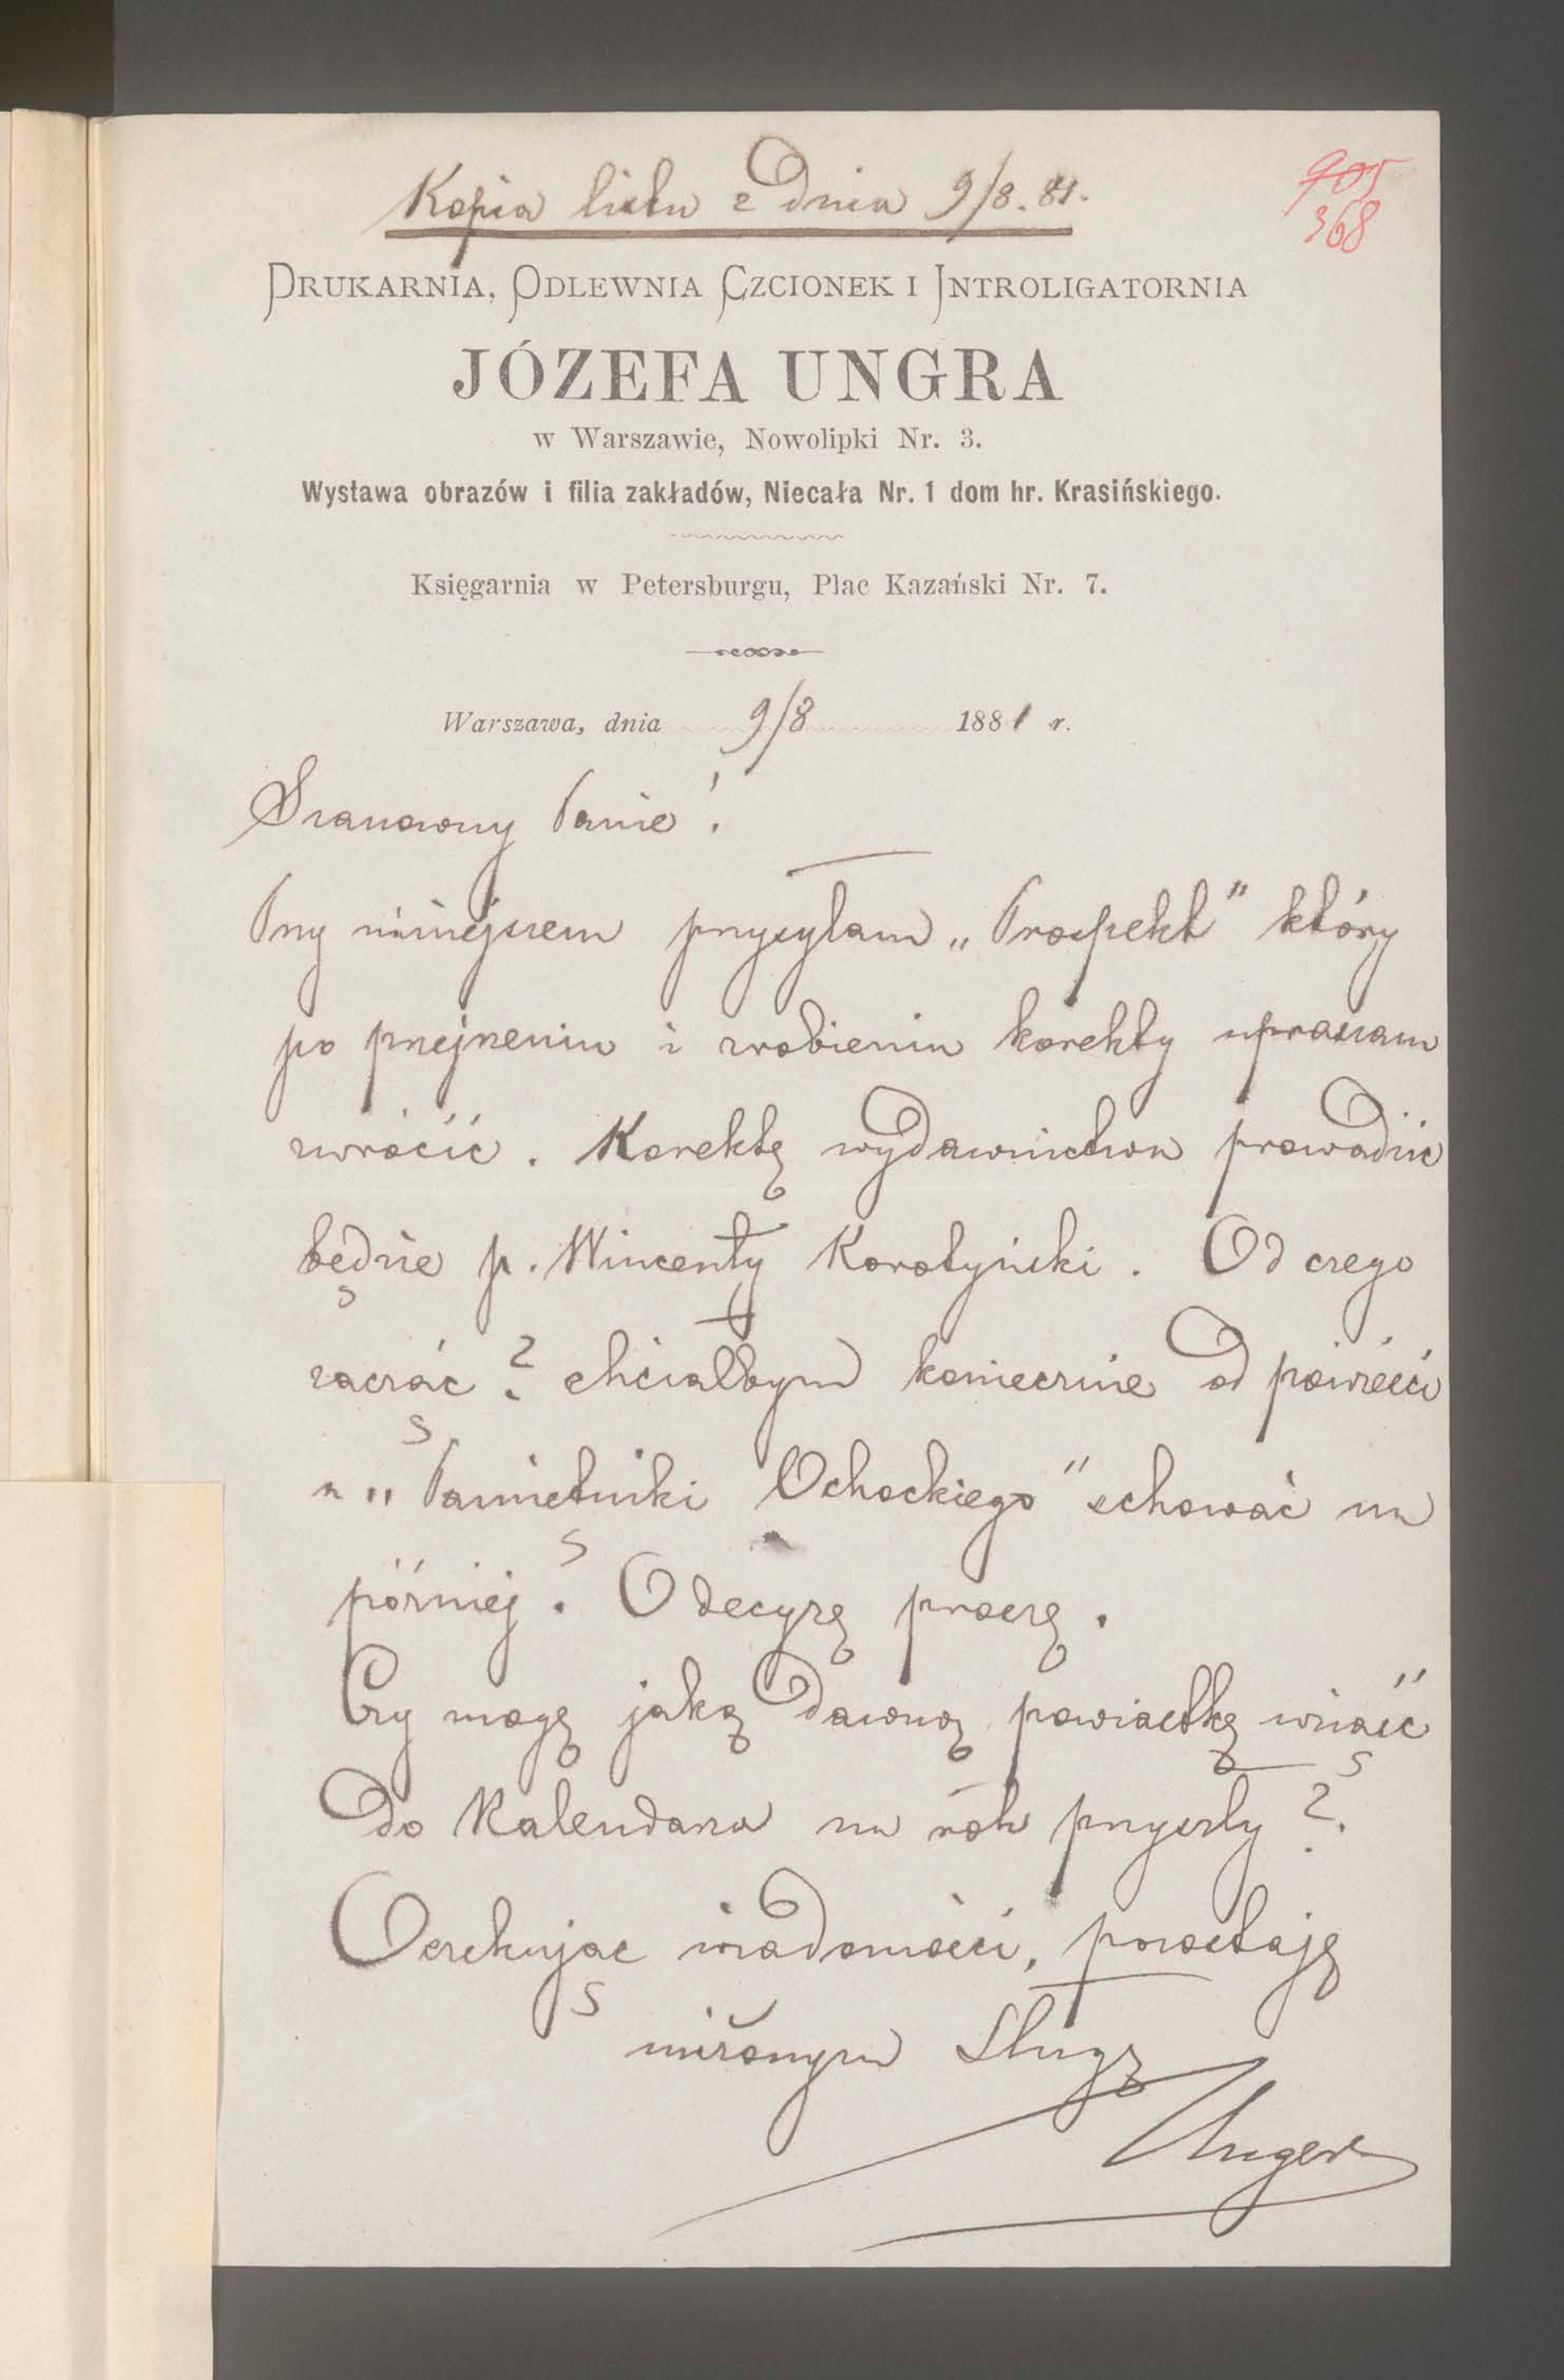 Kopia listu z dnia 9/8. 81.
905
368
DRUKARNIA, ODLEWNIA CZCIONEK I INTROLIGATORNIA
JÓZEFA UNGRA
w Warszawie, Nowolipki Nr. 3.
Wystawa obrazów i filia zakładów, Niecała Nr. 1 dom hr. Krasińskiego.
Księgarnia w Petersburgu, Plac Kazański Nr. 7.
Warszawa, dnia 9/8 1881 r.
Szanowny Panie!
Przy niniejszem przysyłam „Prospekt" który
po przejrzeniu i zrobieniu korekty upraszam
zwrócić. Korektę wydawnictwa prowadzić
będzie p. Wincenty Korotyński. Od czego
zacząć? chciałbym koniecznie od powieści
a „Pamiętniki Ochockiego" schować na
później. O decyzę proszę.
Czy mogę jaką dawną powiastkę wziąść
do Kalendarza na rok przyszły?
Oczekując wiadomości, pozostaję
uniżonym Sługą
Unger